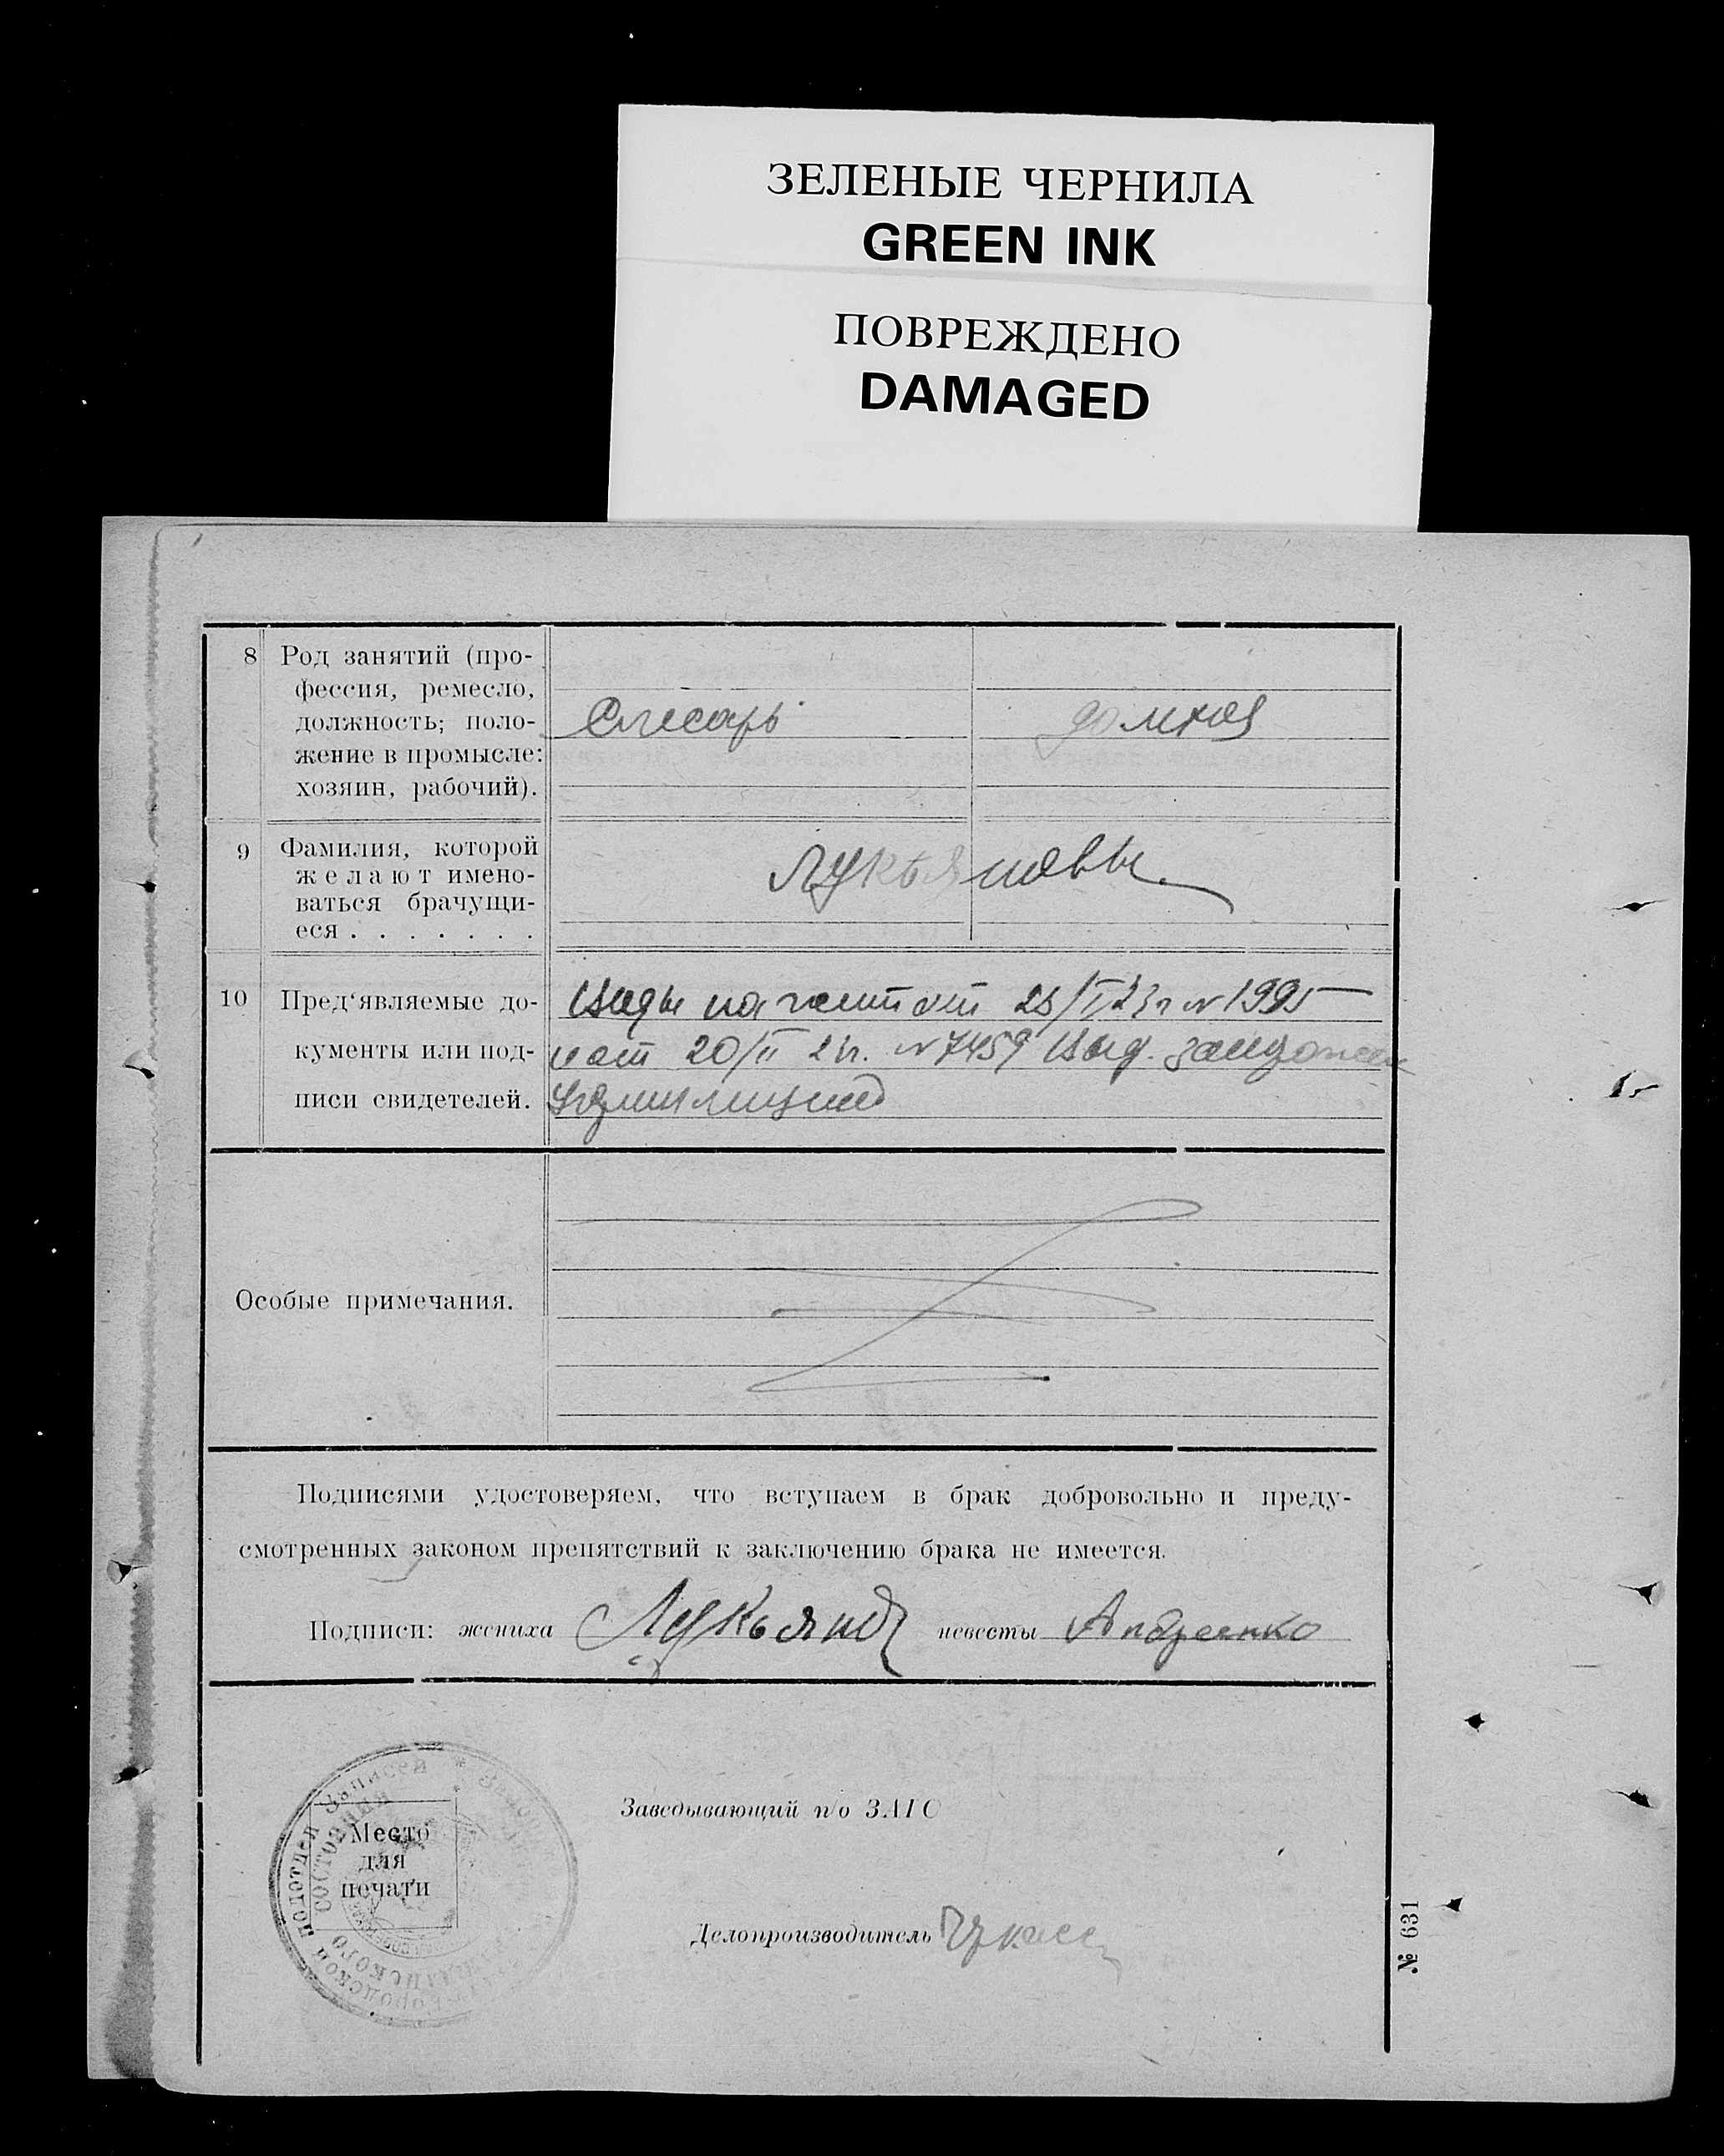 ЗЕЛЕНЫЕ ЧЕРНИЛА
GREEN INK
ПОВРЕЖДЕНО
DAMAGED
8 Род занятий (про-
фессия, ремесло,
должность; поло-
жение в промысле:
хозяин, рабочий).
Слесарь домхоз
9 Фамилия, которой
желают имено-
ваться брачущи-
еся . . . . . . .
Лукьяновы
10 Пред'являемые до-
кументы или под-
писи свидетелей.
Виды на жит от /II 23 г № 1995
и от 20/II № 7459 выд.
милицией
Особые примечания.
Подписями удостоверяем, что вступаем в брак добровольно и преду-
смотренных законом препятствий к заключению брака не имеется.
Подписи: жениха Лукьянов невесты Андреенко
Заведывающий п/о ЗАГС
Место
для
печати
подотдел Записей
состояния
Делопроизводитель
№ 631